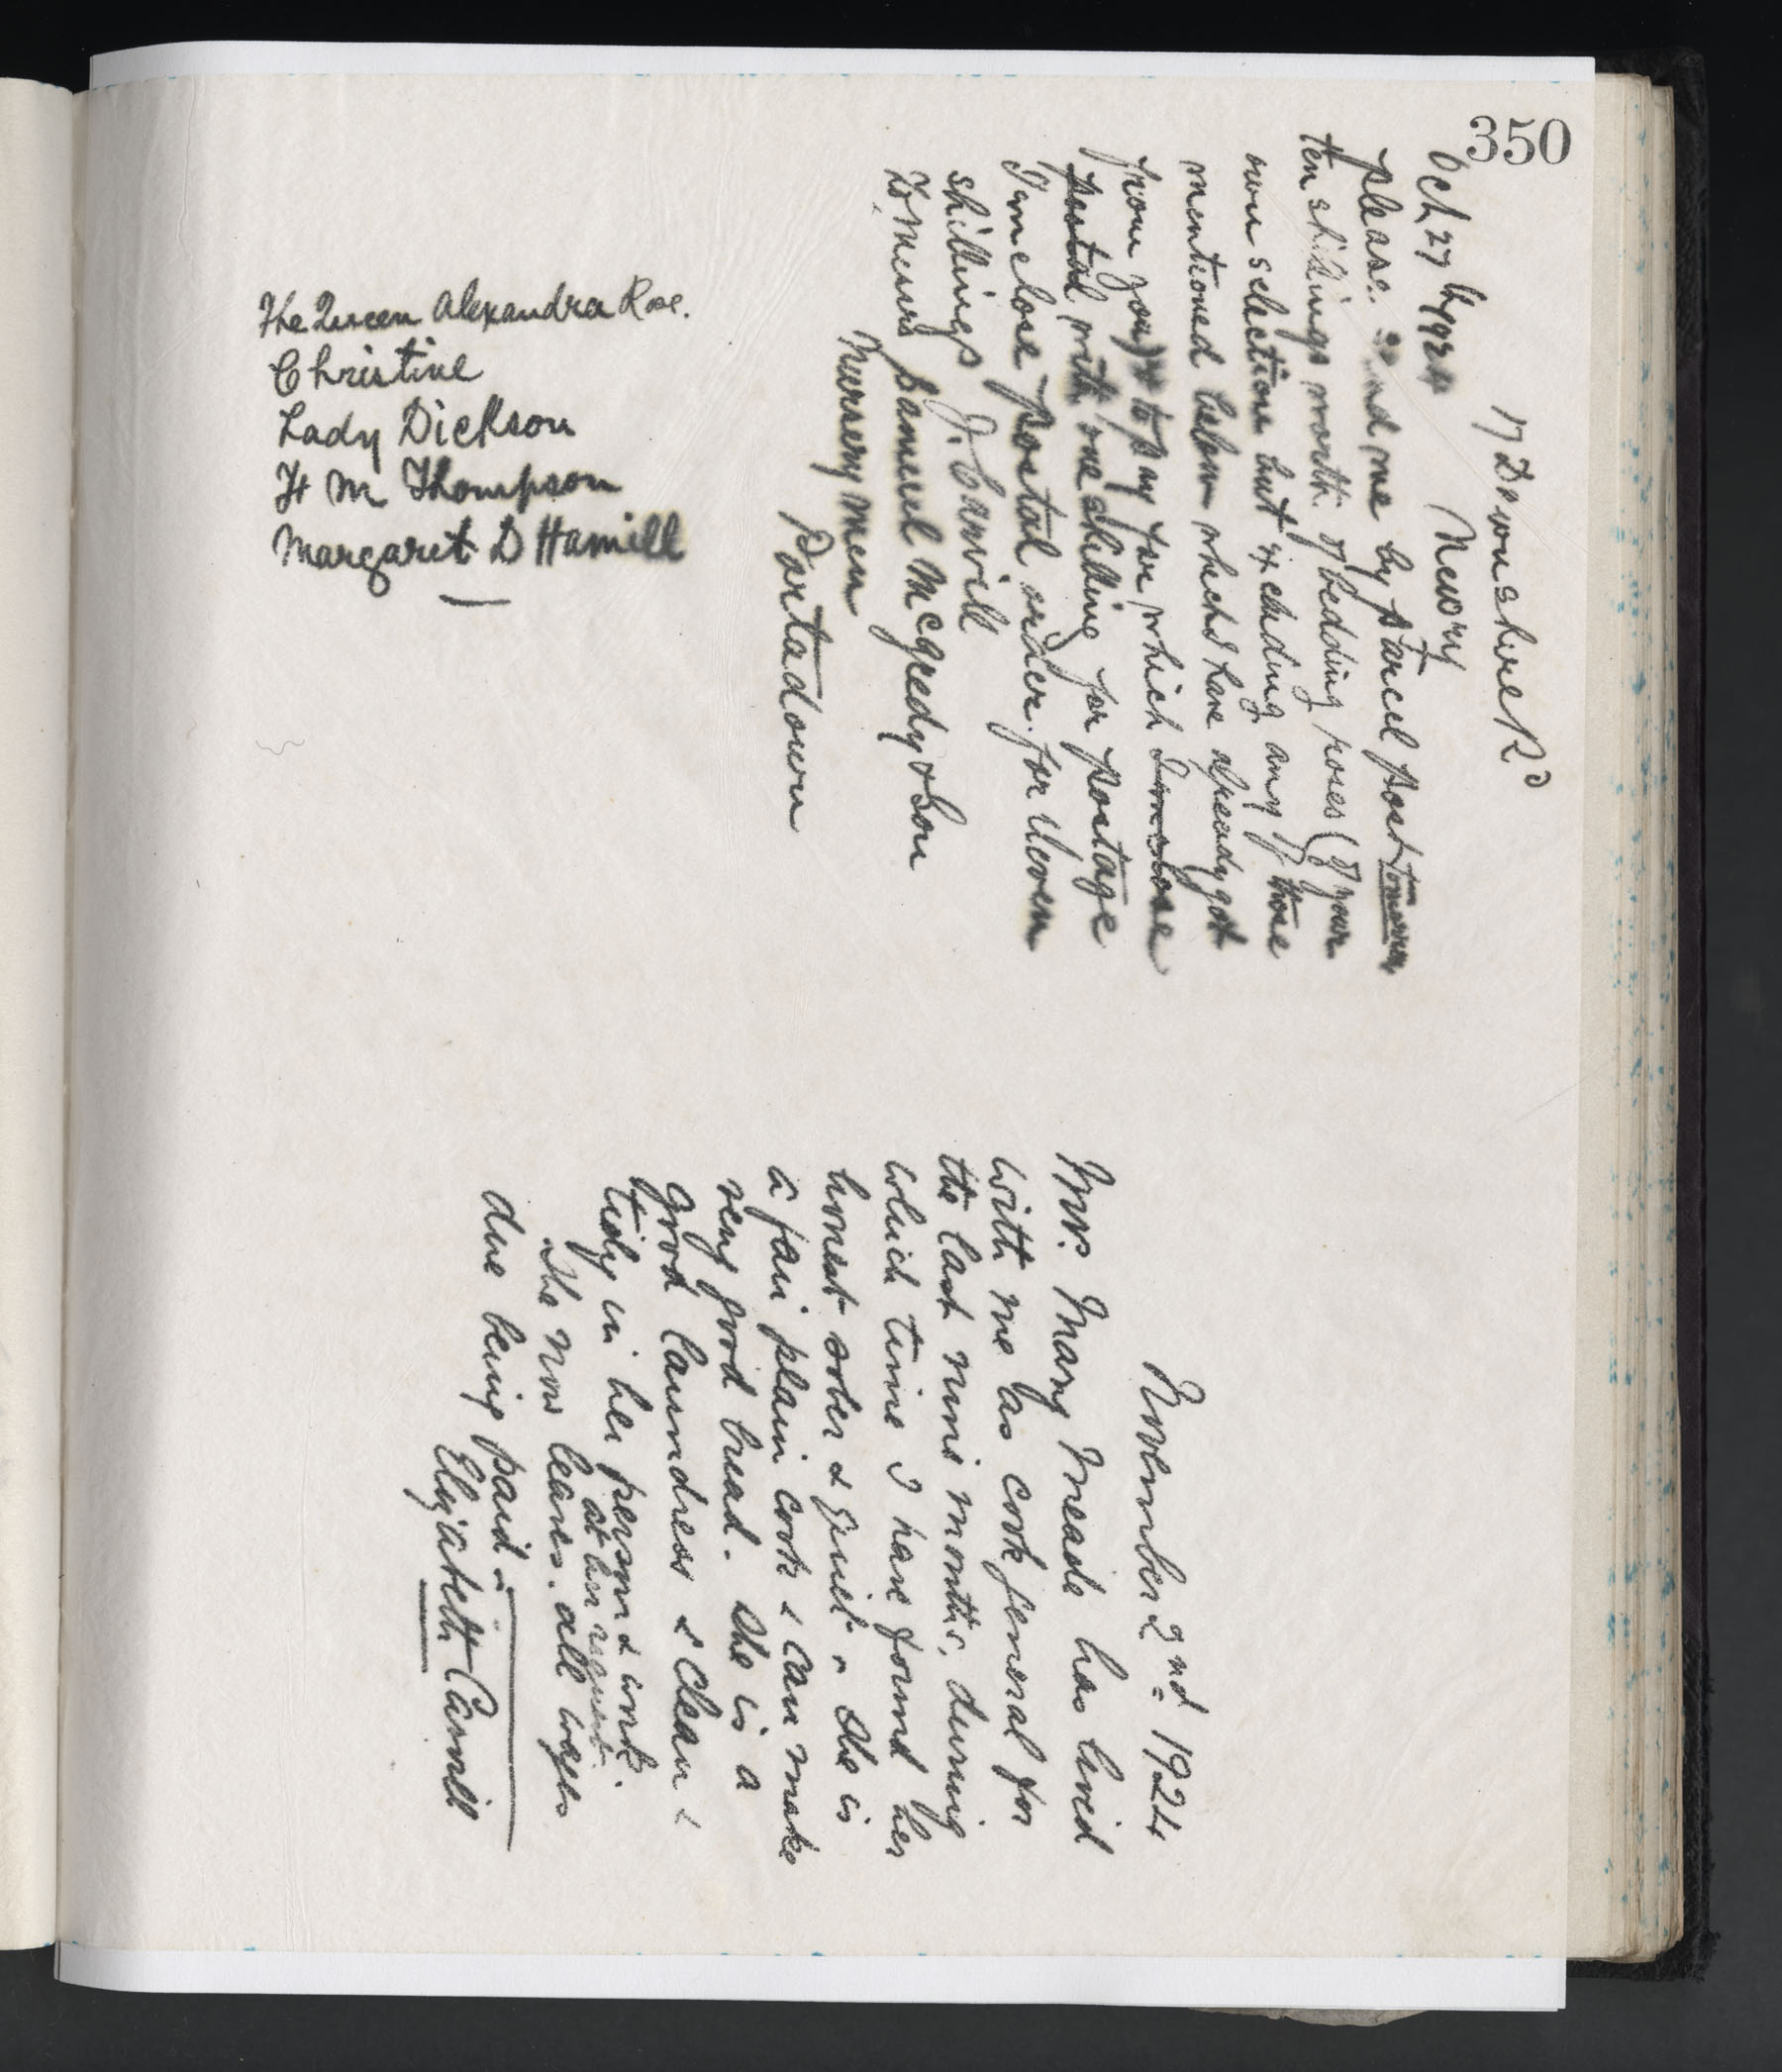 350
17 Downshire Rd
Newry
Oct 27th 1924
please send me by parcel post tomorrow
ten shillings worth of bedding roses (of your
own selection but excluding any of those
mentioned below which I have already got
from you) to pay for which I inclose
postal with one shilling for postage
I inclose postal order for eleven
shillings J. Canvill
To Messrs Samuel McGredy & Son
Nurserymen
Portadown
The Queen Alexandra Rose.
Christine
Lady Dickson
H M Thompson
Margaret D Hamill
November 2nd 1924
Mrs. Mary Meade has lived
with me as cook general for
the last nine months, during
which time I have found her
honest sober & quiet. She is
a fair plain cook & can make
very good bread. She is a
good laundress & clean &
tidy in her person & work.
at her request
She now leaves. all wages
due being paid.
Elizabeth Canvill